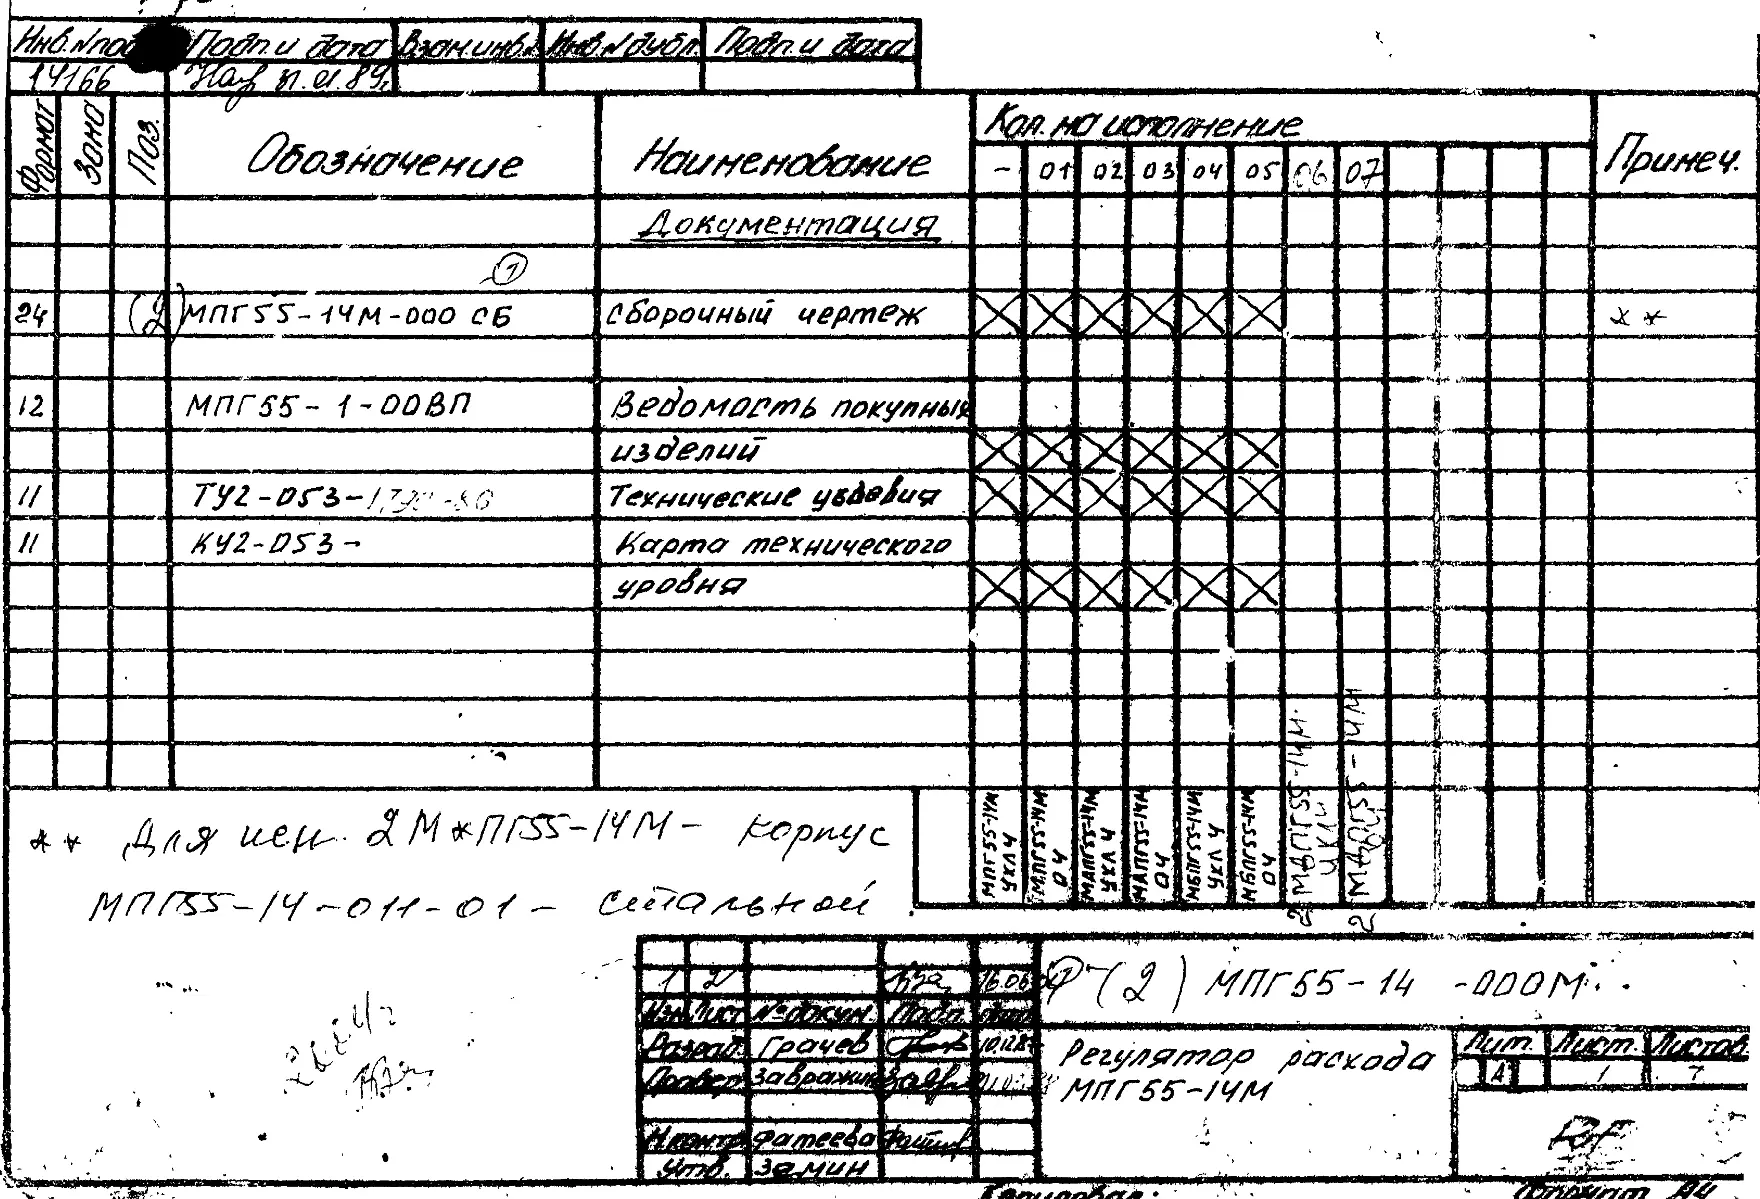 Инв.Nпод Подп.и дата Взам.инв.N Инв.Nдубл. Подп.и дата
14166
Формат Зона Поз. Обозначение Наименование Кол. на исполнение Примеч.
- 01 02 03 04 05 06 07
Документация
1
24 (2) МПГ55-14М-000 СБ сборочный чертеж * *
12 МПГ55-1-00ВП Ведомость покупных
изделий
11 ТУ2-053- Технические условия
11 КУ2-053- Карта технического
уровня
МПГ55-14М УХЛ4
МПГ55-14М О4
МАПГ55-14М УХЛ4
МАПГ55-14М О4
МБПГ55-14М УХЛ4
МБПГ55-14М О4
2МАПГ55-14М
2МАПГ55-14М
* * Для исп. 2М*ПГ55-14М- корпус
МПГ55-14-011-01- стальной
1 2 16.06
(2) МПГ55-14 -000М
Изм. Лист №докум. Подп. Дата
Разраб. Грачев
Провер. Завражин
Н.контр. Фатеева
Утв. Замин
Регулятор расхода
МПГ55-14М
Лит. Лист. Листов
А 1 7
Копировал: Формат А4